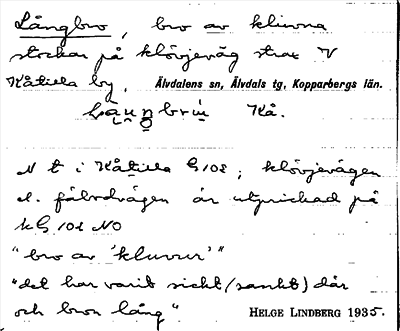 Långbro, bro av kluvna
stockar på klövjeväg strax V
Kåtilla by. Älvdalens sn, Älvdals tg, Kopparbergs län.
Kå.
N t i Kåtilla G108; klövjevägen
el. fäbodvägen är utprickad på
kG 108 NO
"bro av 'kluvur'"
"det har varit sickt (sankt) där
och bron lång"
HELGE LINDBERG 1935.